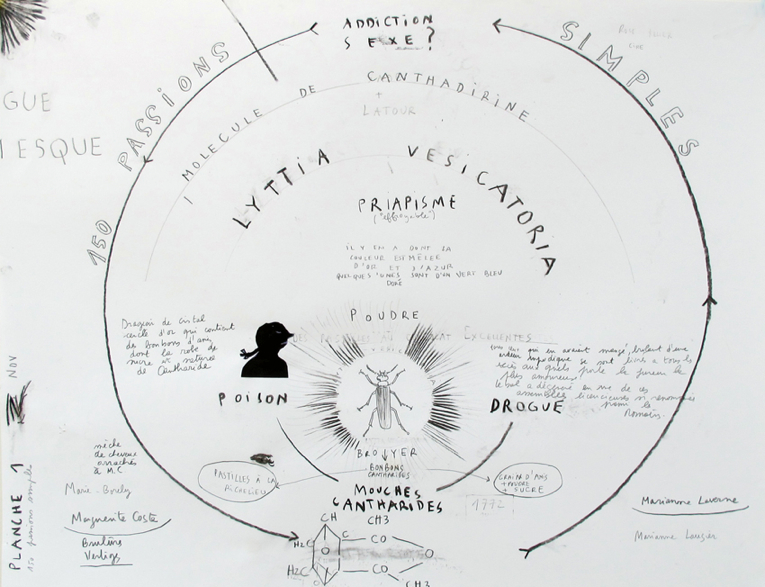 ADDICTION
SEXE?
SIMPLES
150 PASSIONS
GUE
ESQUE
1 MOLECULE DE CANTHADIRINE
+
LATOUR
LYTTIA VESICATORIA
PRIAPISME
("effroyable")
IL Y EN A DONT LA
COULEUR EST MÊLÉE
D'OR ET D'AZUR
QUELQUES UNES SONT D'UN VERT BLEU
DORÉ
POUDRE
EXCELLENTES
Drageoir de cristal
cerclé d'or qui contient
des bonbons d'anis
dont la
de Cantharide
tous ceux qui en avaient mangé, brûlant d'une
ardeur impudique se sont livrés a tous les
excès aux quels porte la fureur la
plus amoureuse
le bal a dégénéré en une de ces
assemblées licencieuses si renommées
parmi les
Romains.
POISON
DROGUE
BROYER
BONBONS
CANTHARIDES
PASTILLES À LA
RICHELIEU
GRAINS D'ANIS
+ POUDRE
+ SUCRE
MOUCHES
CANTHARIDES
1772
NOV
PLANCHE 1
150 passions simples
mèche
de cheveux
arrachés
à M.C
Marie-Borely
Marguerite Coste
Brulûres
Vertiges
Marianne Laverne
Marianne Laugier
CH CH3
H2C C CO
O O
H2C C CO
CH CH3